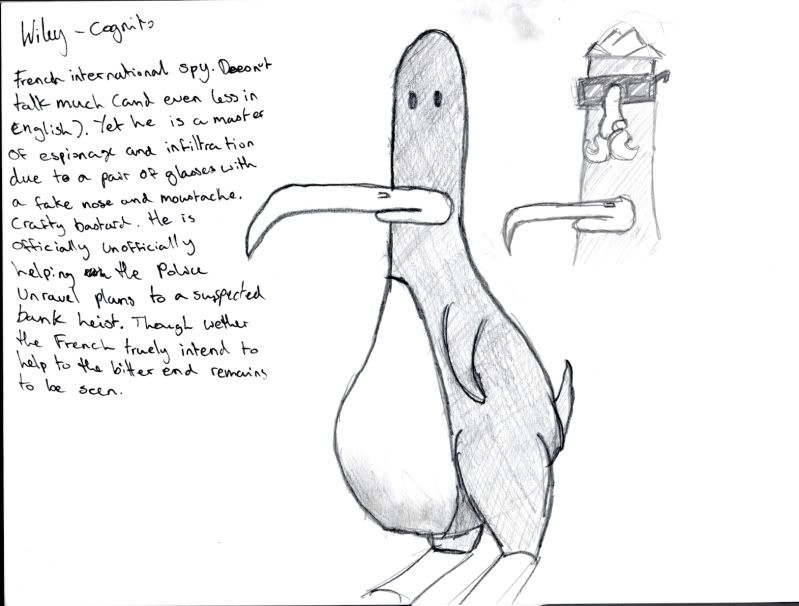 Wiley - Cognito
French international spy. Doeson't
talk much (and even less in
English). Yet he is a master
of espionage and infiltration
due to a pair of glasses with
a fake nose and moustache.
Crafty bastard. He is
officially unofficially
helping the Police
unravel plans to a suspected
bank heist. Though wether
the French truely intend to
help to the bitter end remains
to be seen.